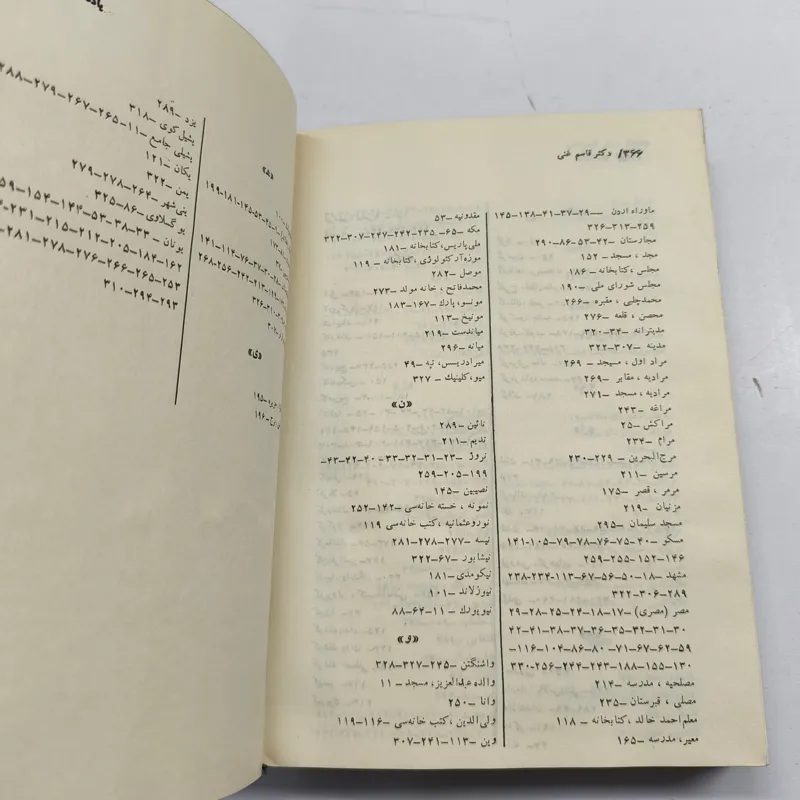 ۳۶۶/ دکتر قاسم غنی
ماوراء اردن — ۲۹-۳۷-۴۱-۱۳۸-۱۴۵
۲۵۹-۳۱۳-۳۲۶
مجارستان -۴۲-۵۳-۸۶-۲۹۰
مجد، مسجد -۱۵۲
مجلس، کتابخانه -۱۸۶
مجلس شورای ملی -۱۹۰
محمدچلبی، مقبره -۲۶۶
محصن، قلعه -۲۷۶
مدیترانه -۳۴-۳۲۰
مدینه -۳۰۷-۳۲۲
مراد اول، مسجد -۲۶۹
مرادیه، مقابر -۲۶۹
مرادیه، مسجد -۲۷۱
مراغه -۲۴۳
مراکش -۲۵
مرام -۲۳۴
مرج‌البحرین -۲۲۹-۲۳۰
مرسین -۲۱۱
مرمر، قصر -۱۷۵
مزنیان -۲۱۹
مسجد سلیمان -۲۹۵
مسکو -۴۰-۷۵-۷۶-۷۸-۷۹-۱۰۵-۱۴۱
۱۴۶-۱۵۲-۲۵۵-۲۵۹
مشهد -۱۸-۵۰-۵۶-۶۷-۱۱۳-۲۳۴-۲۳۸
۲۸۹-۳۰۶-۳۲۲
مصر (مصری) -۱۷-۱۸-۲۴-۲۵-۲۸-۲۹
۳۰-۳۱-۳۲-۳۵-۳۶-۳۷-۳۸-۴۱-۴۲
۵۹-۶۲-۶۷-۷۱- ۸۰-۸۶-۱۰۴-۱۱۶-
۱۳۰-۱۵۵-۱۸۸-۲۴۳-۲۴۴-۲۵۶-۳۳۰
مصلحیه، مدرسه -۲۱۴
مصلی، قبرستان -۲۳۵
معلم احمد خالد، کتابخانه -۱۱۸
معیر، مدرسه -۱۶۵
مقدونیه -۵۳
مکه -۶۵-۲۳۵-۲۴۲-۲۴۷-۳۰۷-۳۲۲
ملی پاریس، کتابخانه -۱۸۱
موزه آرکئولوژی، کتابخانه -۱۱۹
موصل -۲۸۲
محمدفاتح، خانه مولد -۲۷۳
مونسو، پارک -۱۶۷-۱۸۳
مونیخ -۱۱۳
میاندست -۲۱۹
میانه -۲۹۶
میرادریسی، تپه -۴۹
میو، کلینیک -۳۲۷
«ن»
نائین -۲۸۹
ندیم -۲۱۱
نروژ -۲۳-۳۱-۳۲-۳۳- ۴۰-۴۲-۴۳-
۱۹۹-۲۰۵-۲۵۹
نصیبین -۱۴۵
نمونه، خسته خانه‌سی -۱۴۲-۲۵۲
نوروعثمانیه، کتب خانه‌سی ۱۱۹
نیسه -۲۷۷-۲۷۸-۲۸۱
نیشابور -۶۷-۳۲۲
نیکومدی -۱۸۱
نیوزلاند -۱۰۱
نیویورک -۱۱-۶۴-۸۸
«و»
واشنگتن -۲۴۵-۳۲۷-۳۲۸
والده عبدالعزیز، مسجد - ۱۱
وانا -۲۵۰
ولی‌الدین، کتب خانه‌سی -۱۱۶-۱۱۹
وین -۱۱۳-۲۴۱-۳۰۷
«ه»
«ی»
یزد -۲۸۹
یشیل کوی -۳۱۸
یشیلی جامع -۱۱-۲۶۵-۲۶۷-۲۷۹-۲۸۸
یکان -۱۲۱
یمن -۳۲۲
ینی‌شهر -۲۶۴-۲۷۸-۲۷۹
یو گسلاوی -۸۶-۳۲۵
یونان -۳۳-۳۸-۵۳-۱۴۴-۱۵۴-۱۵۹
۱۶۲-۱۸۴-۲۰۵-۲۱۲-۲۱۵-۲۳۱
۲۵۳-۲۶۵-۲۶۶-۲۷۶-۲۷۸-۲۸۱
۲۹۳-۲۹۴-۳۱۰